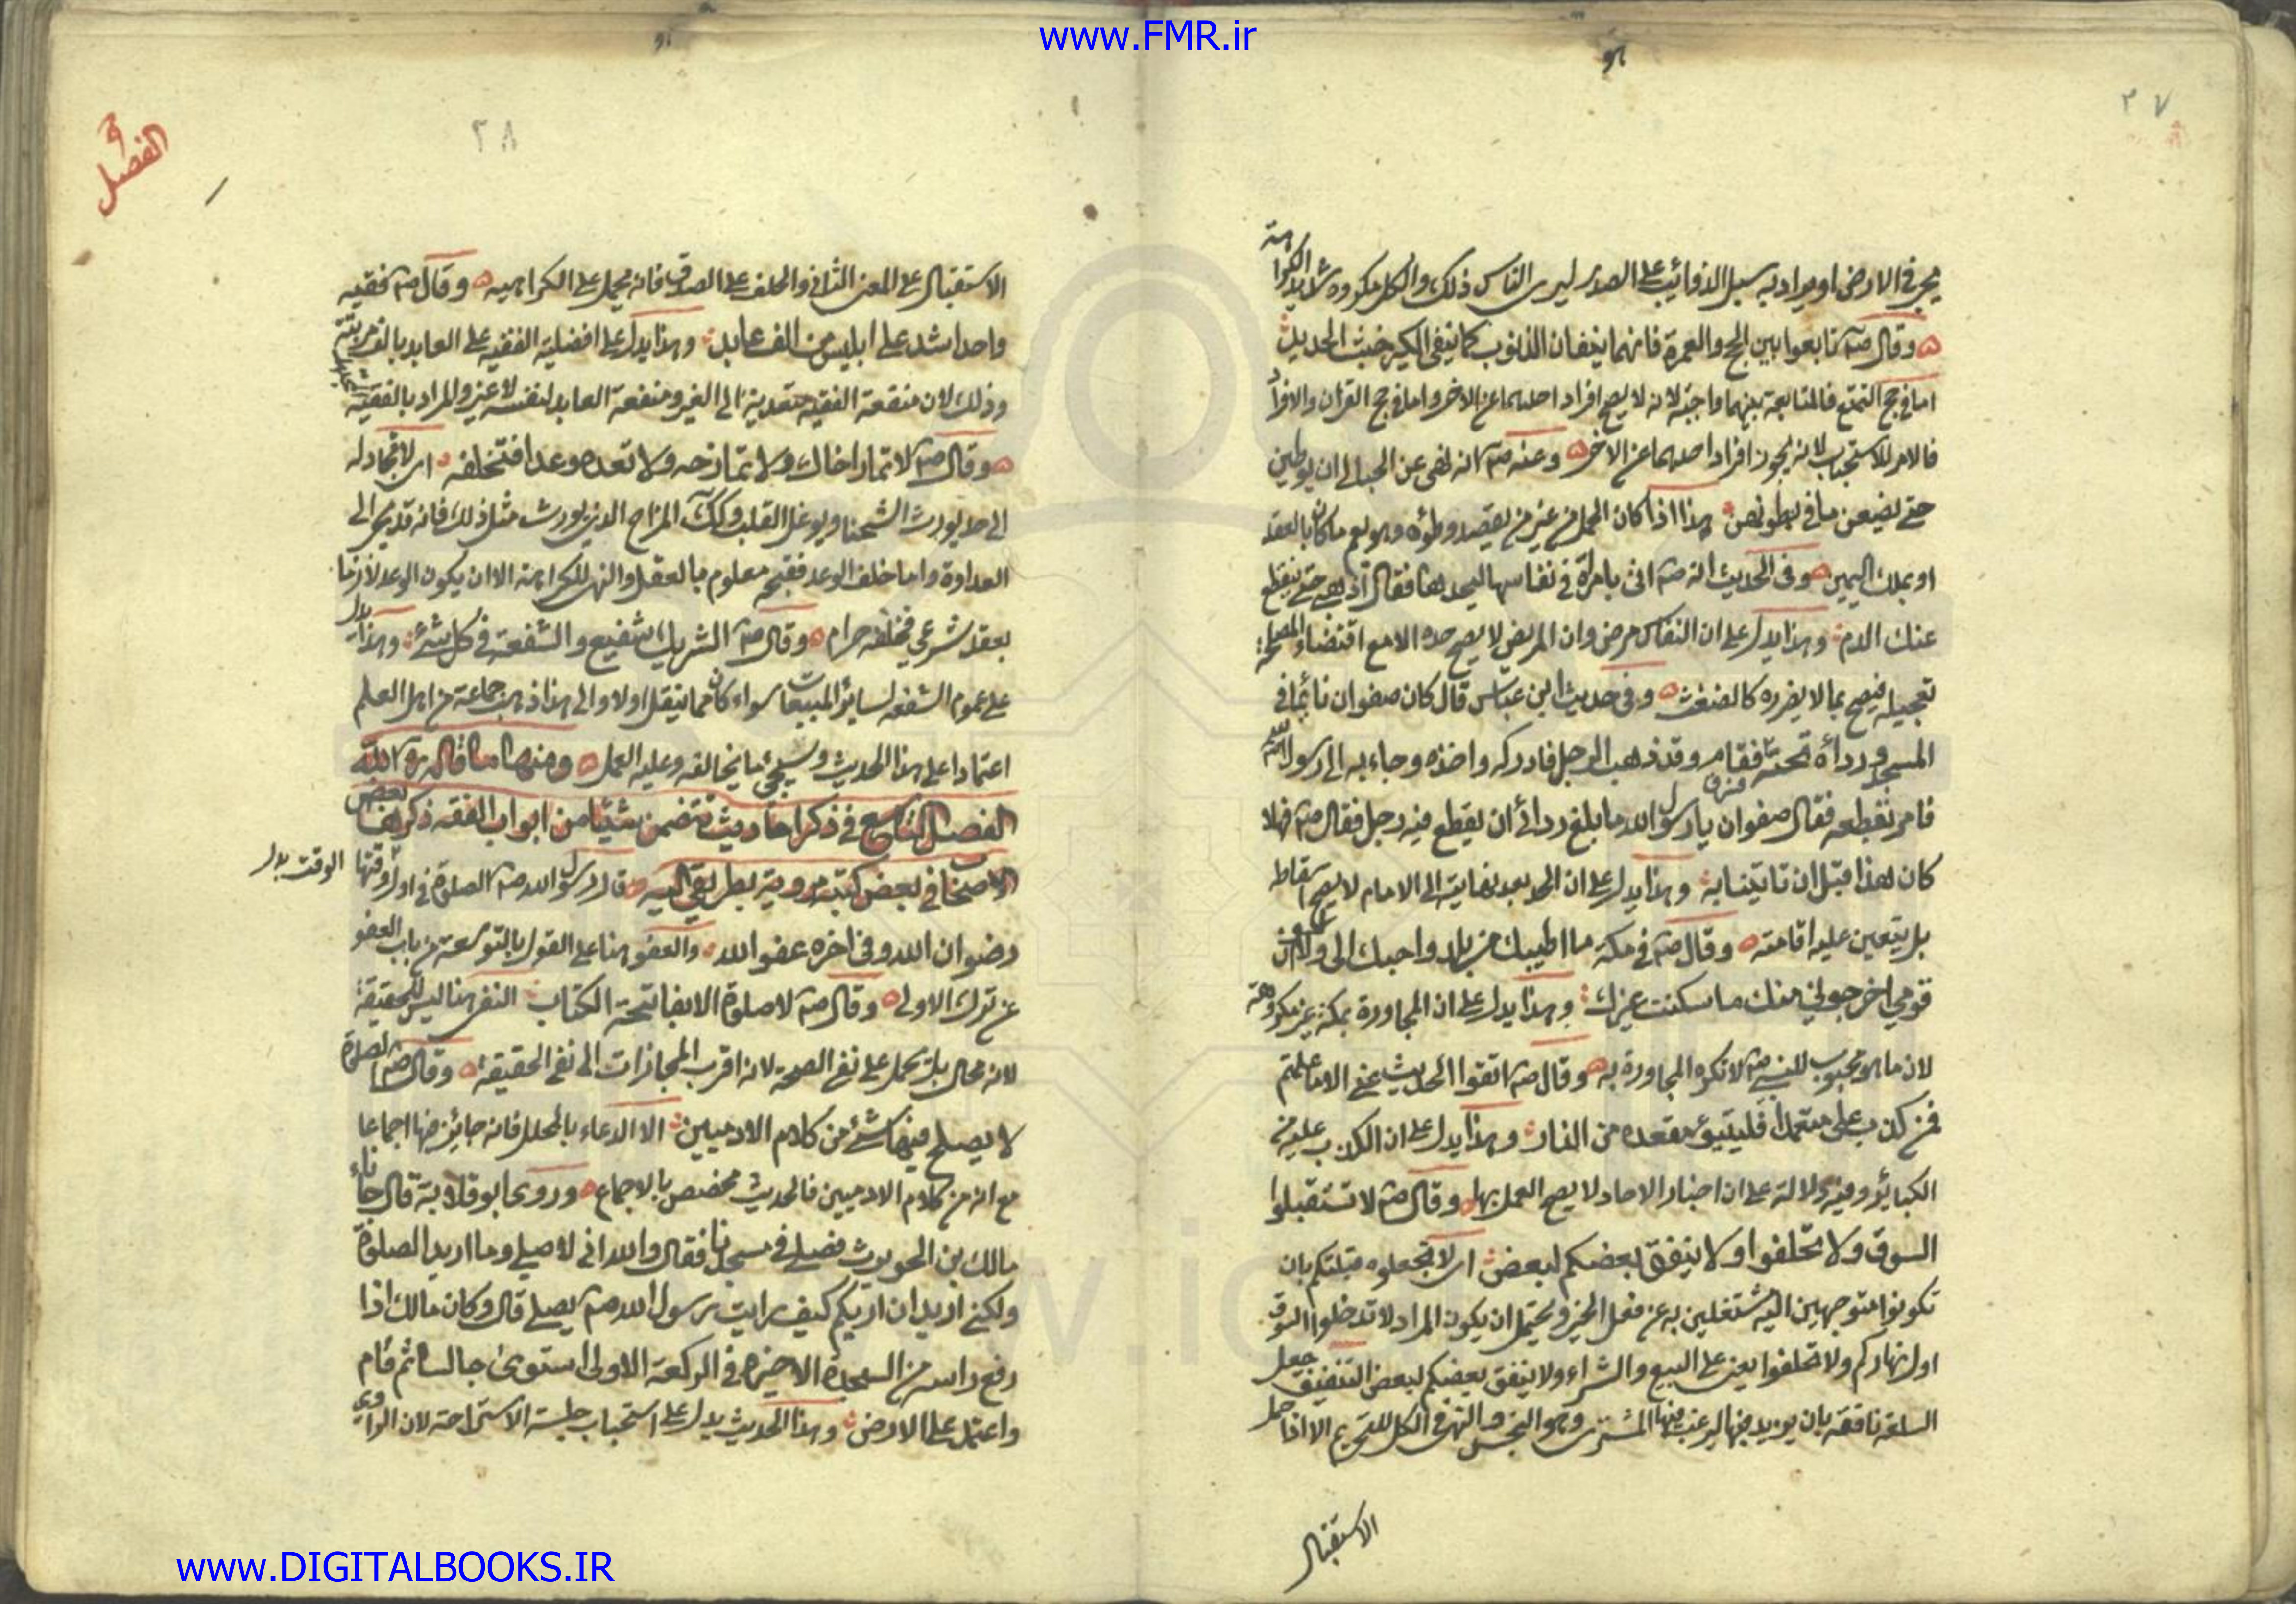 www.FMR.ir
٣٧
يجر في الارض او يراد به سبل الذوائب على الصدر ليرى الناس ذلك والكل مكروه شديد الكراهة
وقال ص تابعوا بين الحج والعمرة فانهما ينفيان الذنوب كما ينفى الكير خبث الحديد
اما في حج التمتع فالمتابعة بينهما واجبة لانه لا يصح افراد احدهما عن الاخر واما في حج القران والافراد
فالامر للاستحباب لانه يجوز افراد احدهما عن الاخر وعنه ص انه نهى عن الحبالى ان يوطين
حتى تضيعن ما في بطونهن هذا اذا كان الحمل من غير من يقصد وطؤه وهو يعم ما كان بالعقد
او بملك اليمين وفي الحديث انه ص اتى بامراة في نفاسها ليحدها فقال اذهبي حتى ينقطع
عنك الدم وهذا يدل على ان النفاس مرض وان المريض لا يصح حده الا مع اقتضاء المصلحة
تعجيله فيصح بما لا يضره كالضغث وفي حديث ابن عباس قال كان صفوان نائما في
المسجد ورداؤه تحته فقام وقد ذهب الرجل فادركه واخذه وجاء به الى رسول الله
فامر بقطعه فقال صفوان يا رسول الله ما بلغ ردائي ان يقطع فيه رجل فقال ص فهلا
كان لهذا قبل ان تاتينا به وهذا يدل على ان الحد بعد نهايته الى الامام لا يصح اسقاطه
بل يتعين عليه اقامته وقال ص في مكة ما اطيبك من بلد واحبك الى ولولا ان
قومي اخرجوني منك ما سكنت غيرك وهذا يدل على ان المجاورة بمكة غير مكروهة
لان ما هو محبوب للنبي ص لا تكره المجاورة به وقال ص اتقوا الحديث عنى الا ما علمتم
فمن كذب على متعمدا فليتبوء مقعده من النار وهذا يدل على ان الكذب عليه من
الكبائر وفيه دلالة على ان اخبار الاحاد لا يصح العمل بها وقال ص لا تستقبلوا
السوق ولا تحلفوا ولا ينفق بعضكم لبعض اى لا تجعلوه قبلتكم بان
تكونوا متوجهين اليه مشتغلين به عن فعل الخير ويحتمل ان يكون المراد لا تدخلوا السوق
اول نهاركم ولا تحلفوا يعنى على البيع والشراء ولا ينفق بعضكم لبعض التنفيق جعل
السلعة نافقة بان يزيد فيها ليرغب فيها المشترى وهو النجش والنهى في الكل للتحريم الا اذا حمل
الاستقبال
٣٨
الفصل
الاستقبال على المعنى الثاني والحلف على الصدق فانه يحمل على الكراهية وقال ص فقيه
واحد اشد على ابليس من الف عابد وهذا يدل على افضلية الفقيه على العابد بالف مرتبة
وذلك لان منفعة الفقيه متعدية الى الغير ومنفعة العابد لنفسه لا غير والمراد بالفقيه
وقال ص لا تمار اخاك ولا تمازحه ولا تعده وعدا فتخلفه اى لا تجادله
الى حد يورث الشحنا ويوغل القلب وكك المزاح الذي يورث مثل ذلك فانه قد يجر الى
العداوة واما خلف الوعد فقبحه معلوم بالعقل والنهى للكراهة الا ان يكون الوعد لازما
بعقد شرعي فخلفه حرام وقال ص الشريك شفيع والشفعة في كل شئ وهذا يدل
على عموم الشفعة لسائر المبيعات سواء كان مما ينقل اولا والى هذا ذهب جماعة من اهل العلم
اعتمادا على هذا الحديث وسيجئ ما يخالفه وعليه العمل ومنها ما قال ره الله
الفصل التاسع في ذكر احاديث تتضمن شيئا من ابواب الفقه ذكرها بعض
الاصحاب في بعض كتبه مروية بطريقي اليه قال رسول الله ص الصلوة في اول وقتها
الوقت بدل
رضوان الله وفي اخره عفو الله والعفو هنا على القول بالتوسعة من باب العفو
عن ترك الاولى وقال ص لا صلوة الا بفاتحة الكتاب النفى هنا ليس للحقيقة
لانه محال بل يحمل على نفى الصحة لانه اقرب المجازات الى نفى الحقيقة وقال ص الصلوة
لا يصلح فيها شئ من كلام الادميين الا الدعاء بالمحلل فانه جائز فيها اجماعا
مع انه من كلام الادميين فالحديث مخصص بالاجماع وروى ابو قلابة قال جاءنا
مالك بن الحويرث فصلى في مسجدنا فقال والله اني لاصلي وما اريد الصلوة
ولكني اريد ان اريكم كيف رايت رسول الله ص يصلي قال وكان مالك اذا
رفع راسه من السجدة الاخيرة في الركعة الاولى استوى جالسا ثم قام
واعتمد على الارض وهذا الحديث يدل على استحباب جلسة الاستراحة لان الراوي
www.DIGITALBOOKS.IR